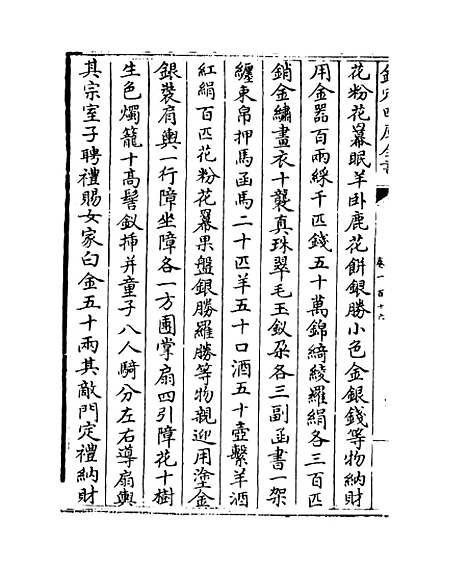 欽定四庫全書
卷一百十六
花粉花冪眠羊卧鹿花餅銀勝小色金銀錢等物納財
用金器百兩綵千匹錢五十萬錦綺綾羅絹各三百匹
銷金繡畫衣十襲真珠翠毛玉釵朶各三副函書一架
纏束帛押馬函馬二十匹羊五十口酒五十壺繫羊酒
紅絹百匹花粉花冪果盤銀勝羅勝等物親迎用塗金
銀裝肩輿一行障坐障各一方團掌扇四引障花十樹
生色燭籠十高髻釵插并童子八人騎分左右導扇輿
其宗室子聘禮賜女家白金五十兩其敵門定禮納財